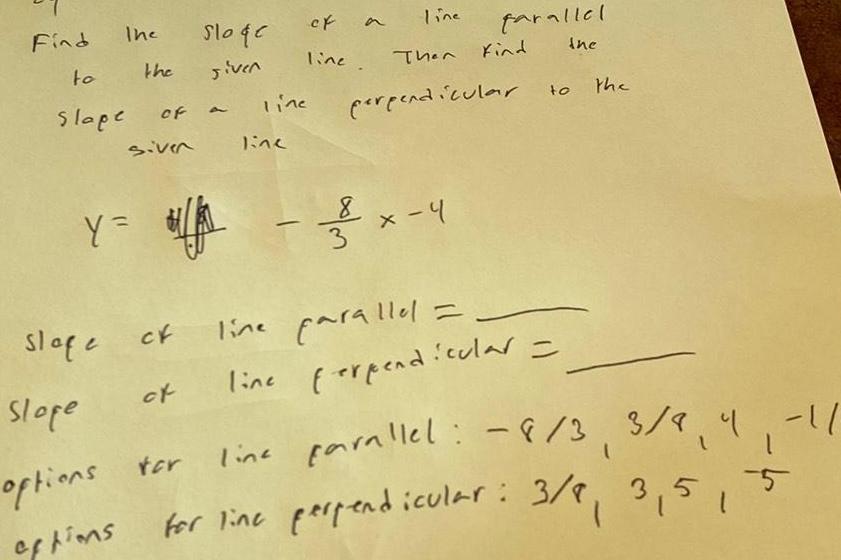 Find the slope of a line parallel
to the given line. Then find the
slope of a line perpendicular to the
given line
y = - 8/3 x - 4
slope of line parallel = ____
slope of line perpendicular = ____
options for line parallel: -8/3, 3/8, 4, -11
options for line perpendicular: 3/8, 3, 5, -5